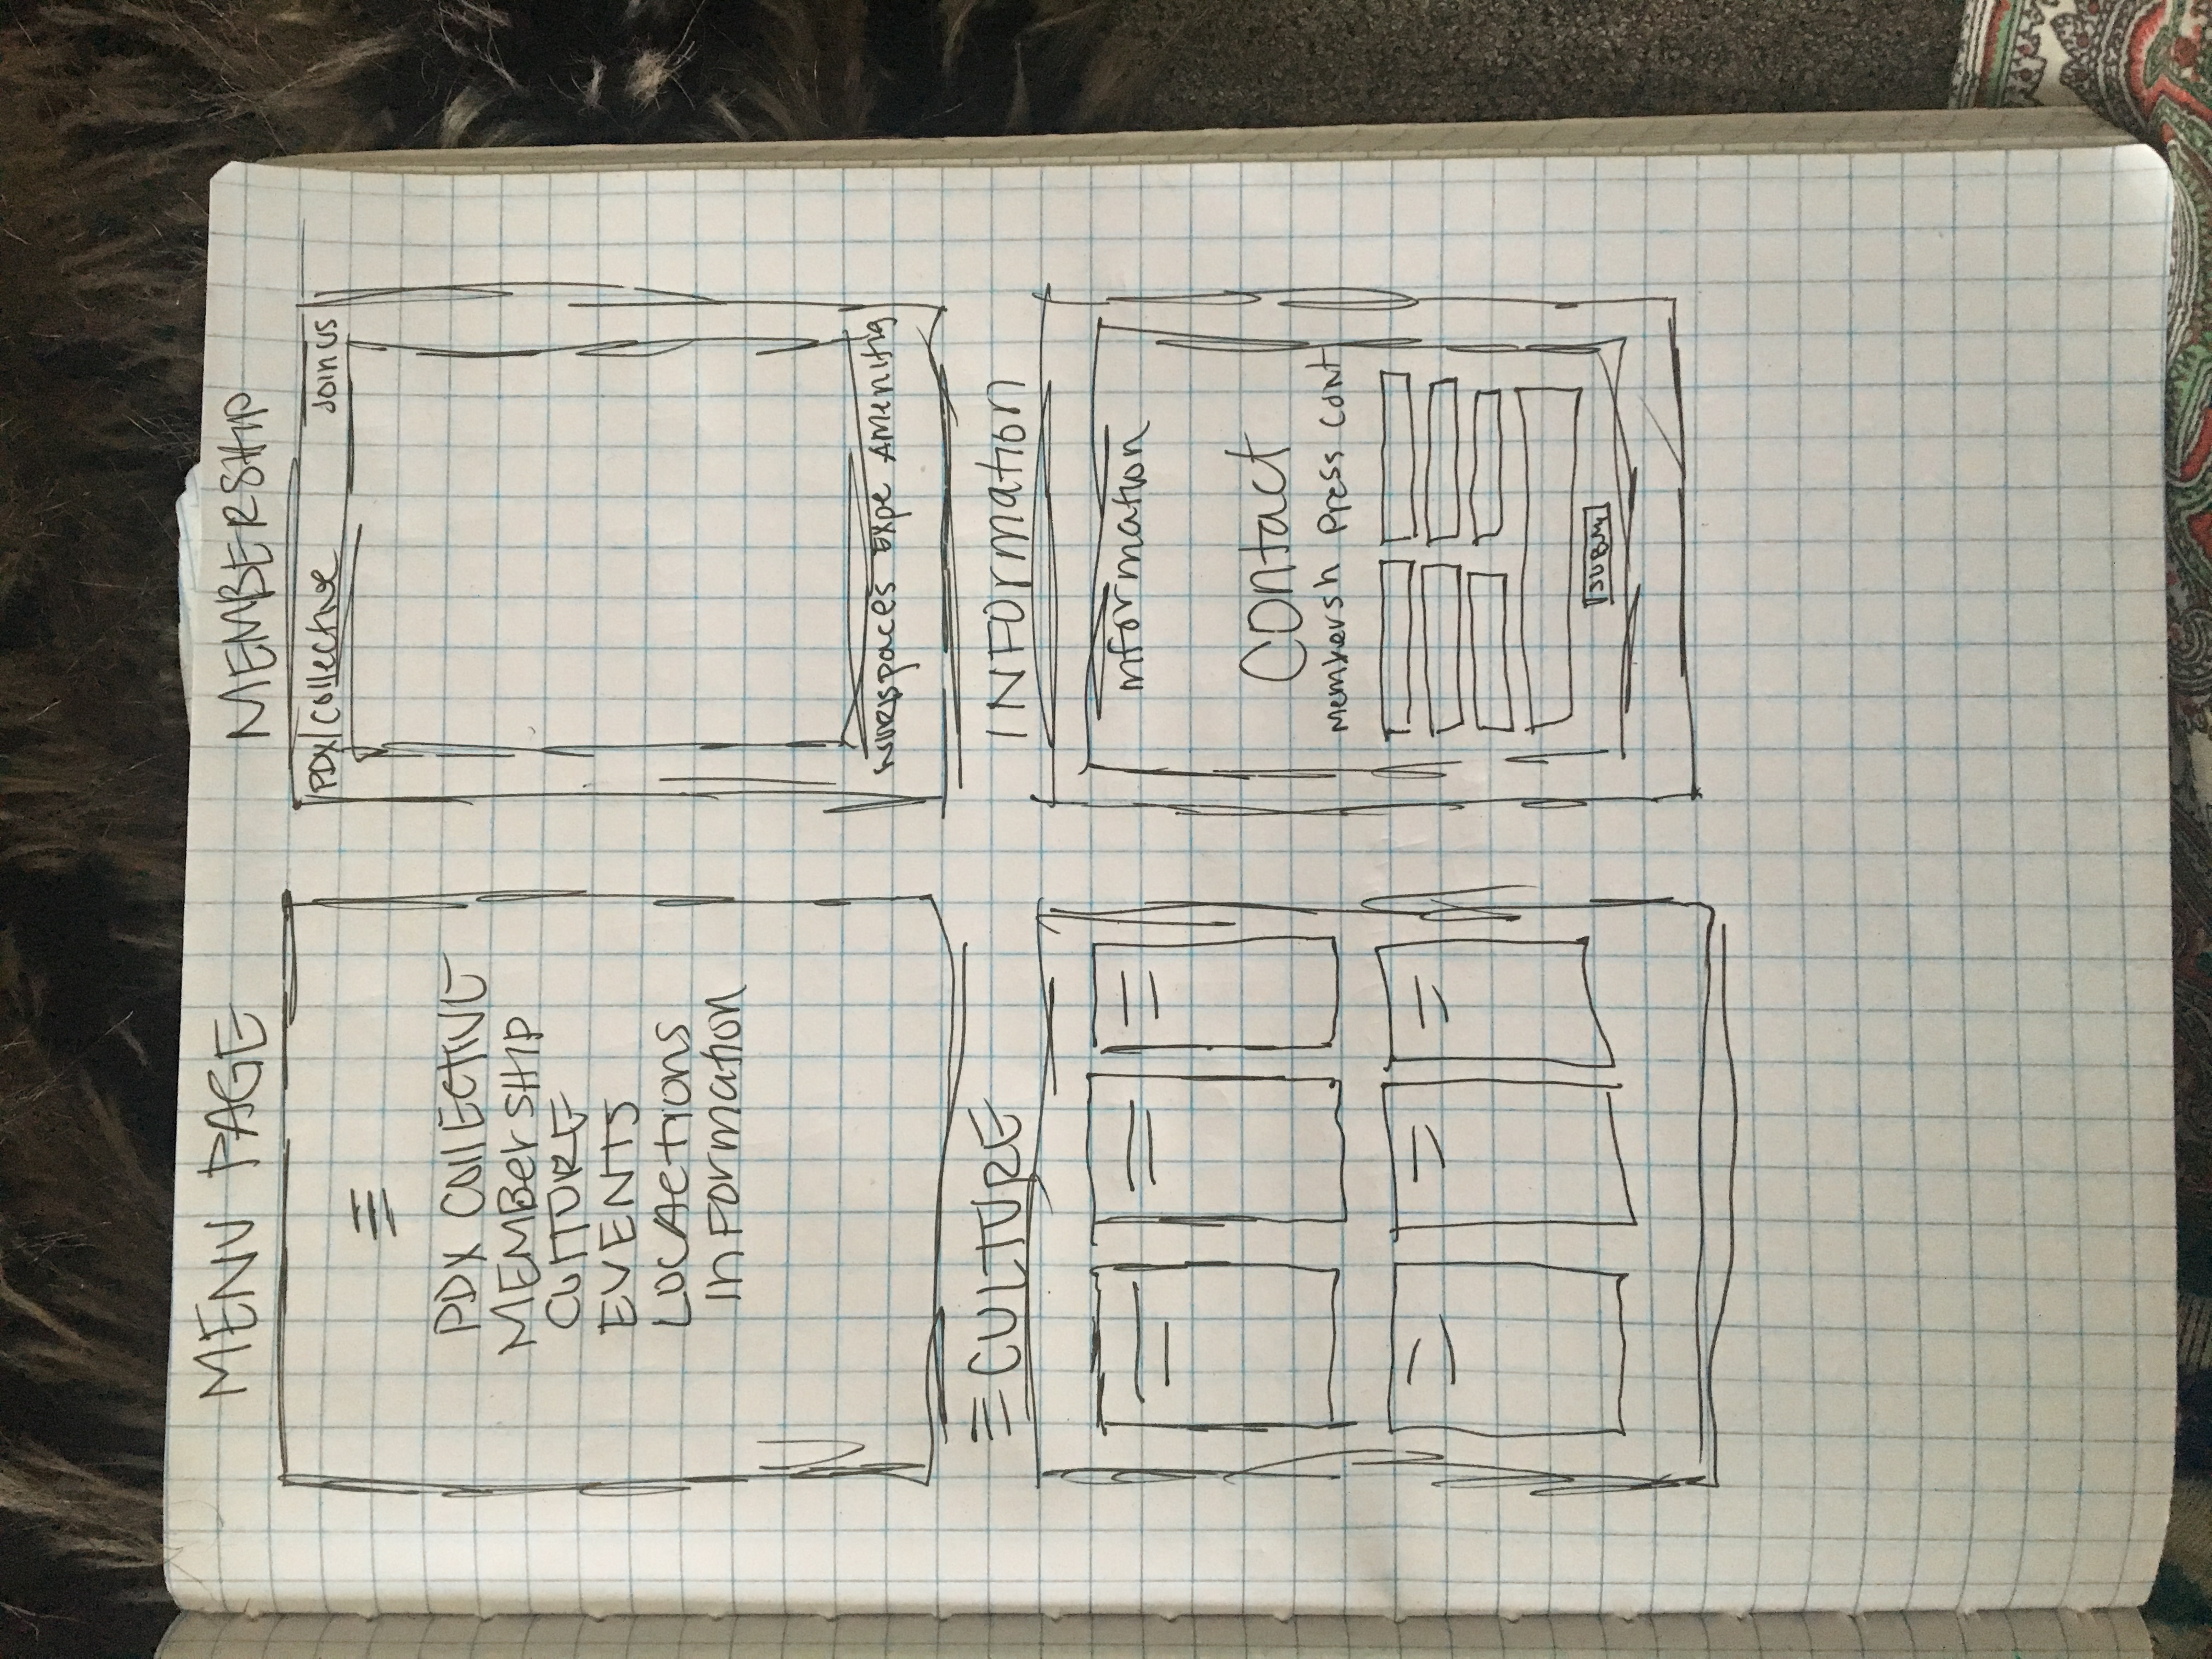 MENU PAGE
PDX COllECTIVE
MEMBerSHIP
CULTURE
EVENTS
LOCAetIons
InFormation
MEMBERSHIP
PDX/Collective Join us
workspaces Expe Amenitig
CULTURE
INFormation
nformation
Contact
Membersh Press Cont
SUBM